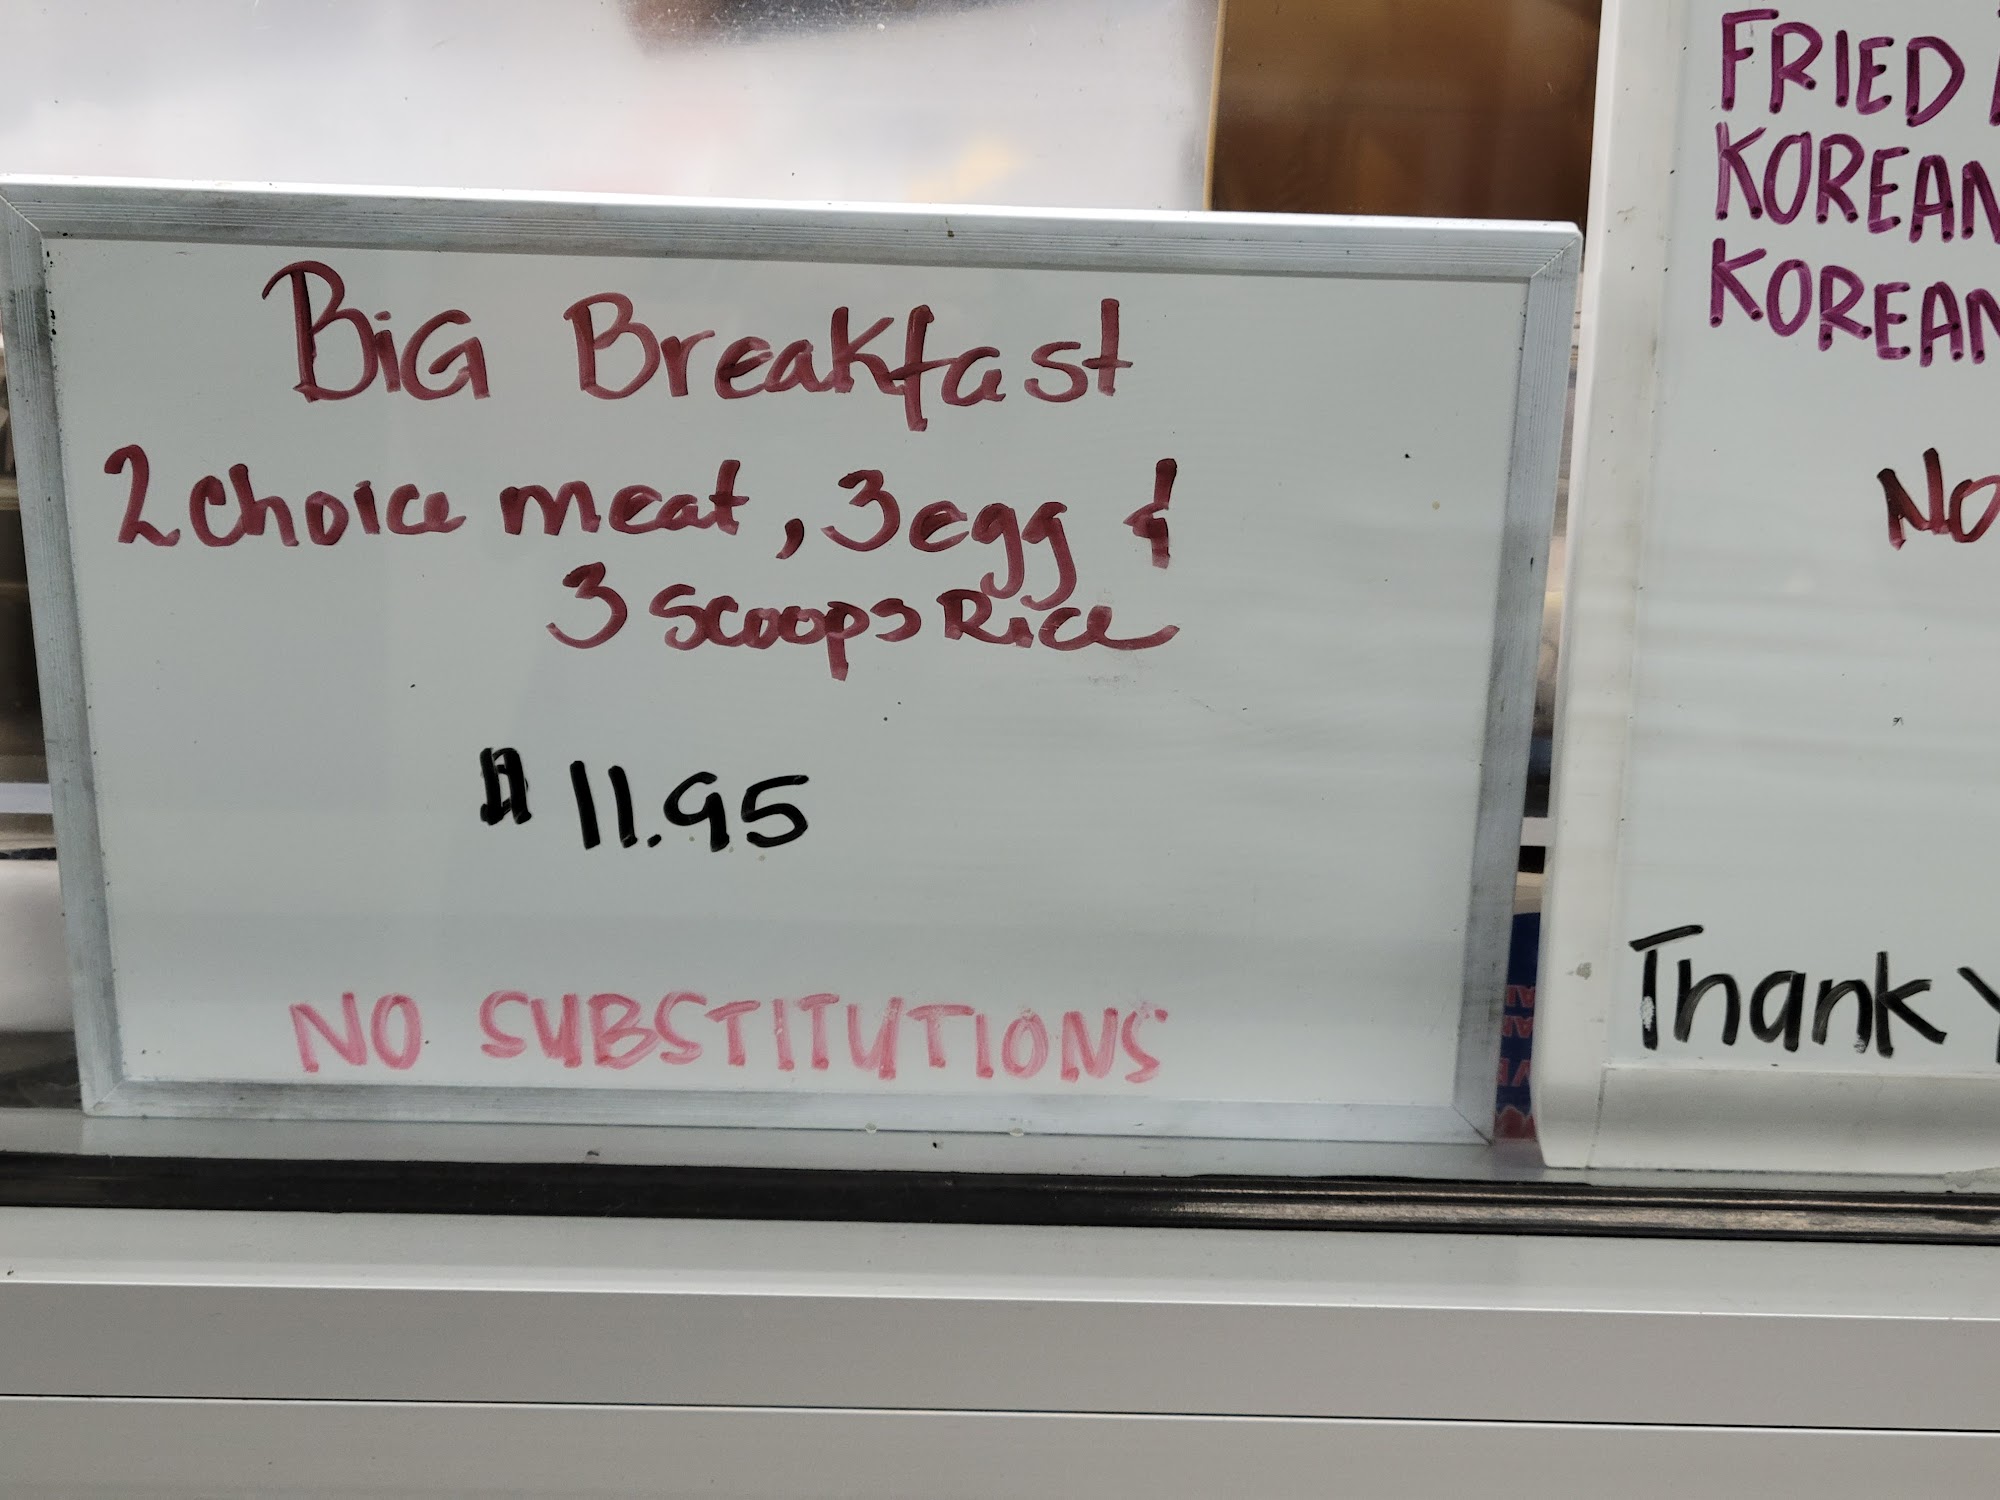 BiG Breakfast
2 choice meat, 3 egg &
3 scoops Rice
$ 11.95
NO SUBSTITUTIONS
FRIED
KOREAN
KOREAN
No
Thank